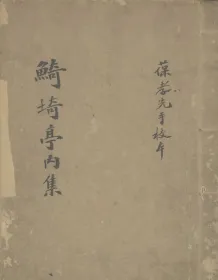 葆孝先手校本
鲒埼亭內集